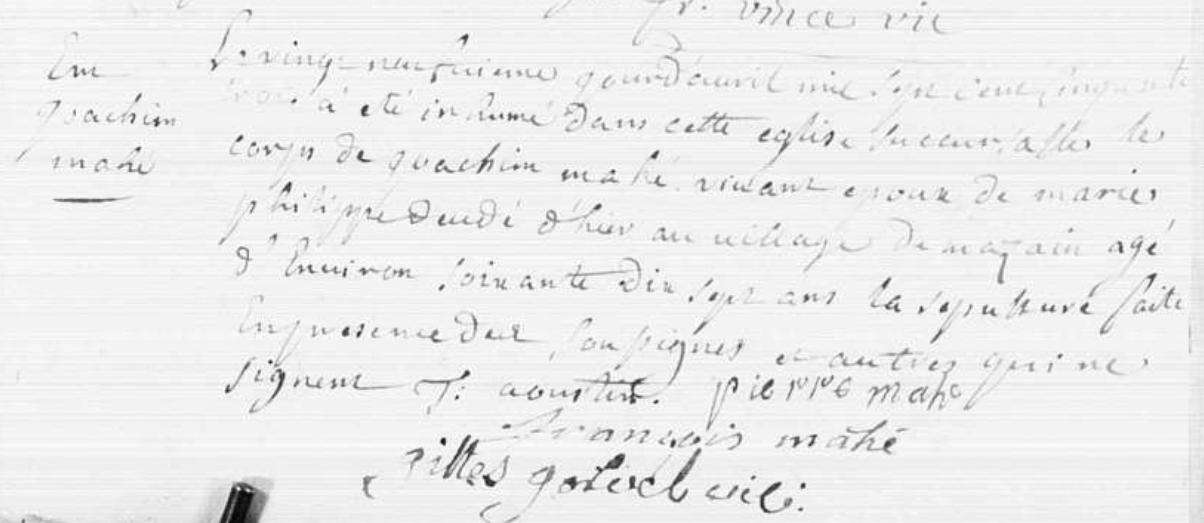 fr. vince vic
Em
Joachim
mahé
Le vingt neufuieme jour d'auril mil sept cent cinquante
trois a été inhumé dans cette eglise succursalle le
corps de joachim mahé viuant epoux de marie
philippe decedé d'hier au uillage de mazain agé
d'Enuiron soixante dix sept ans la sepulture faite
En presence des soussignes et autres qui ne
signent J: aoustin. pierre mahe
françois mahé
gilles vic: